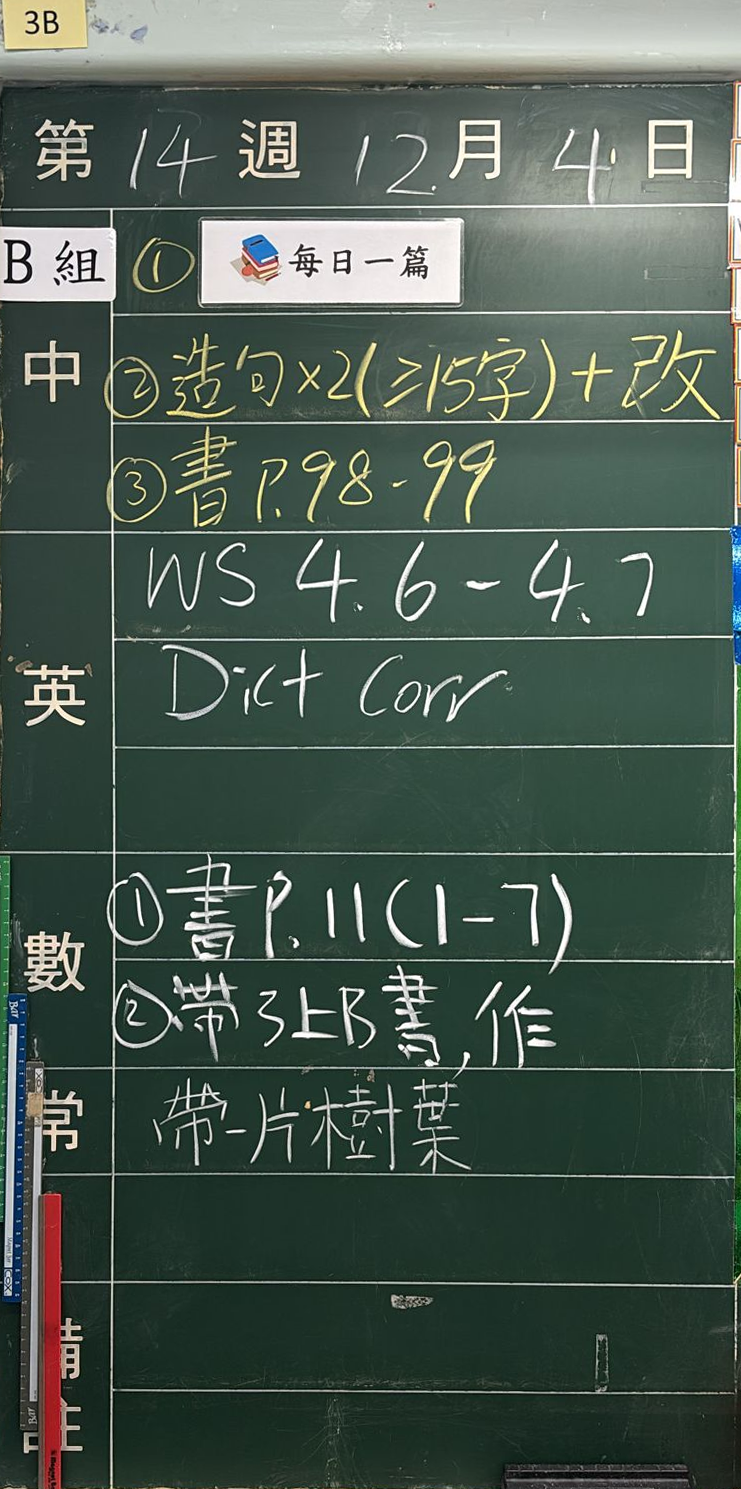 3B
第 14 週 12月 4 日
B 組 ① 每日一篇
中 ②造句×2(≥15字)+改
③書 P.98-99
WS 4.6-4.7
Dict Corr
英
數 ①書 P.11(1-7)
②帶3上B書,作
常 帶一片樹葉
備註